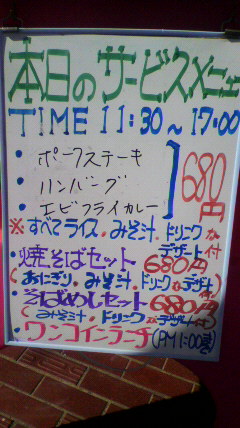 本日のサービスメニュー
TIME 11:30~17:00
・ポークステーキ
・ハンバーグ
・エビフライカレー
680円
※すべてライス・みそ汁・ドリンク
デザート付
・焼そばセット 680円
(おにぎり・みそ汁・ドリンク・デザート付)
・そばめしセット 680円
(みそ汁・ドリンク・デザート付)
・ワンコインランチ(PM1:00迄)